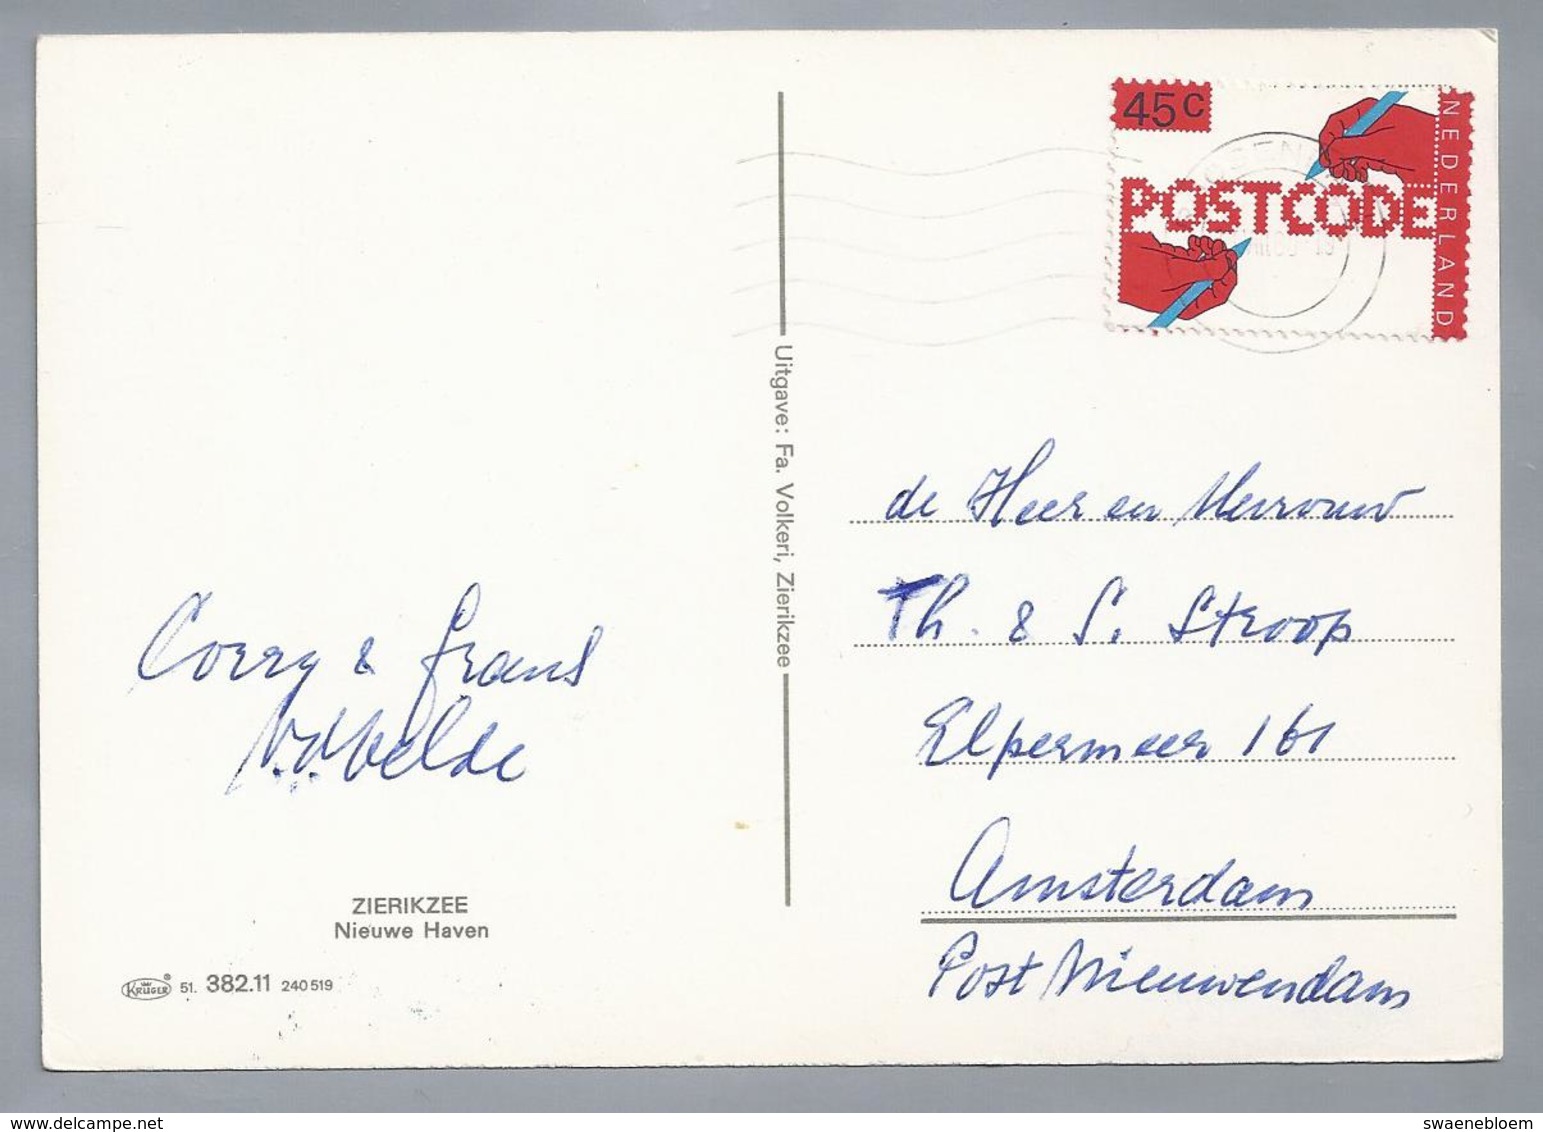 45c
POSTCODE
NEDERLAND
Uitgave: Fa. Volkeri, Zierikzee
de Heer en Mevrouw
Th. & S. Stroop
Elpermeer 161
Amsterdam
Post Nieuwendam
Corry & Frans
v.d. Velde
ZIERIKZEE
Nieuwe Haven
KRÜGER ® 51. 382.11 240519
www.delcampe.net
swaenebloem